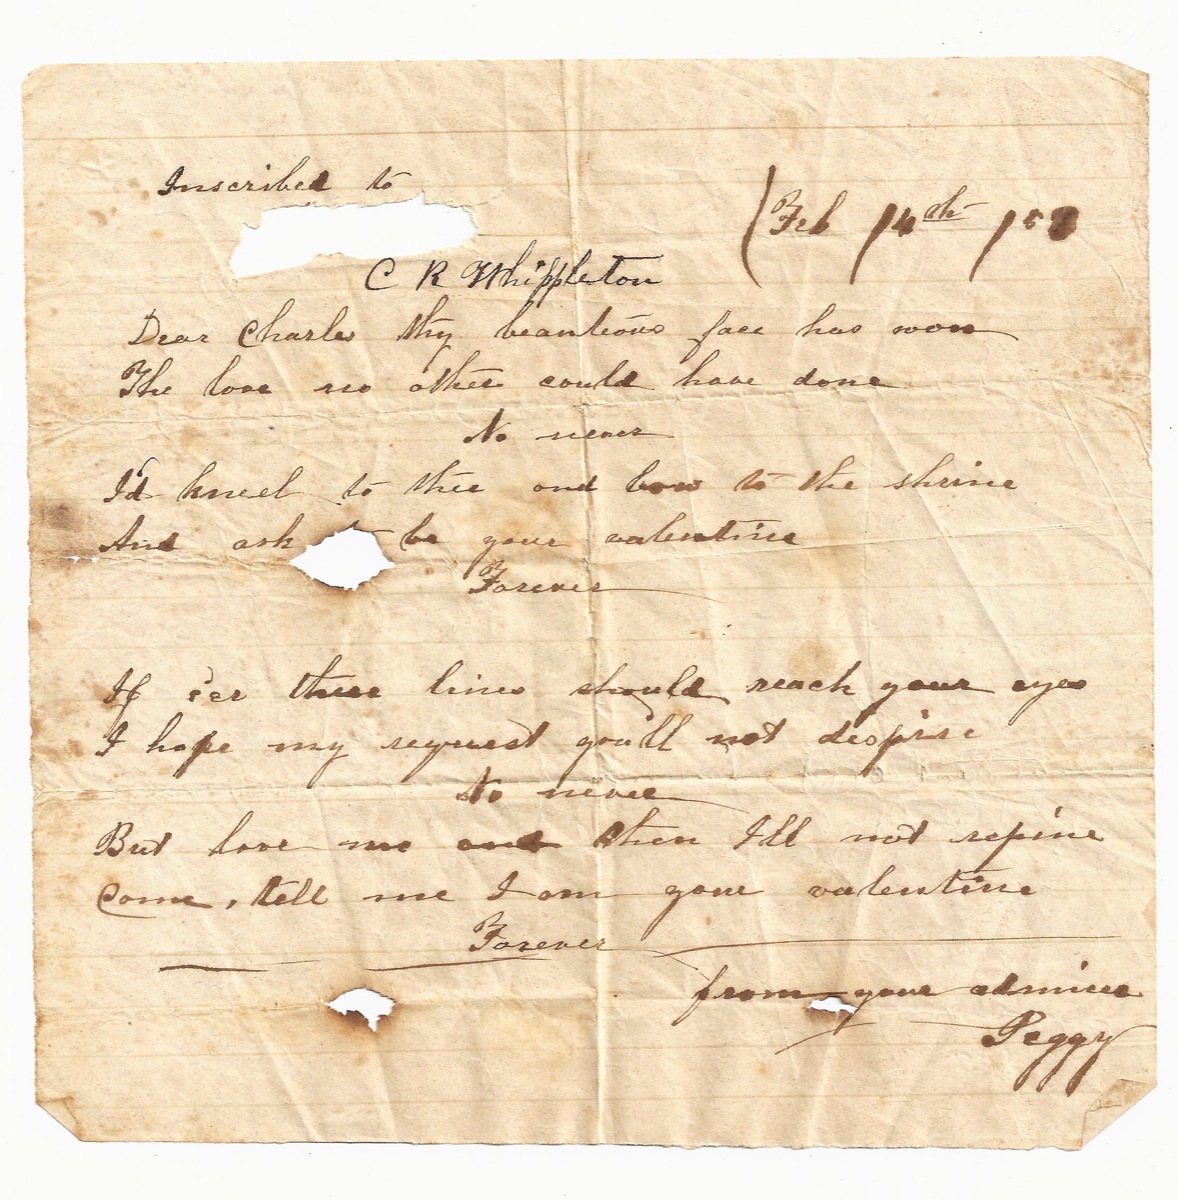 Inscribed to
Feb 14th /58
C R Whippleton
Dear Charles thy beauteous face has won
The love no other could have done
No never
I'd kneel to thee and bow to the shrine
And ask to be your valentine
Forever
If e'er these lines should reach your eyes
I hope my request you'll not despise
No never
But love me and then I'll not repine
Come, tell me I am your valentine
Forever
from your admirer
Peggy